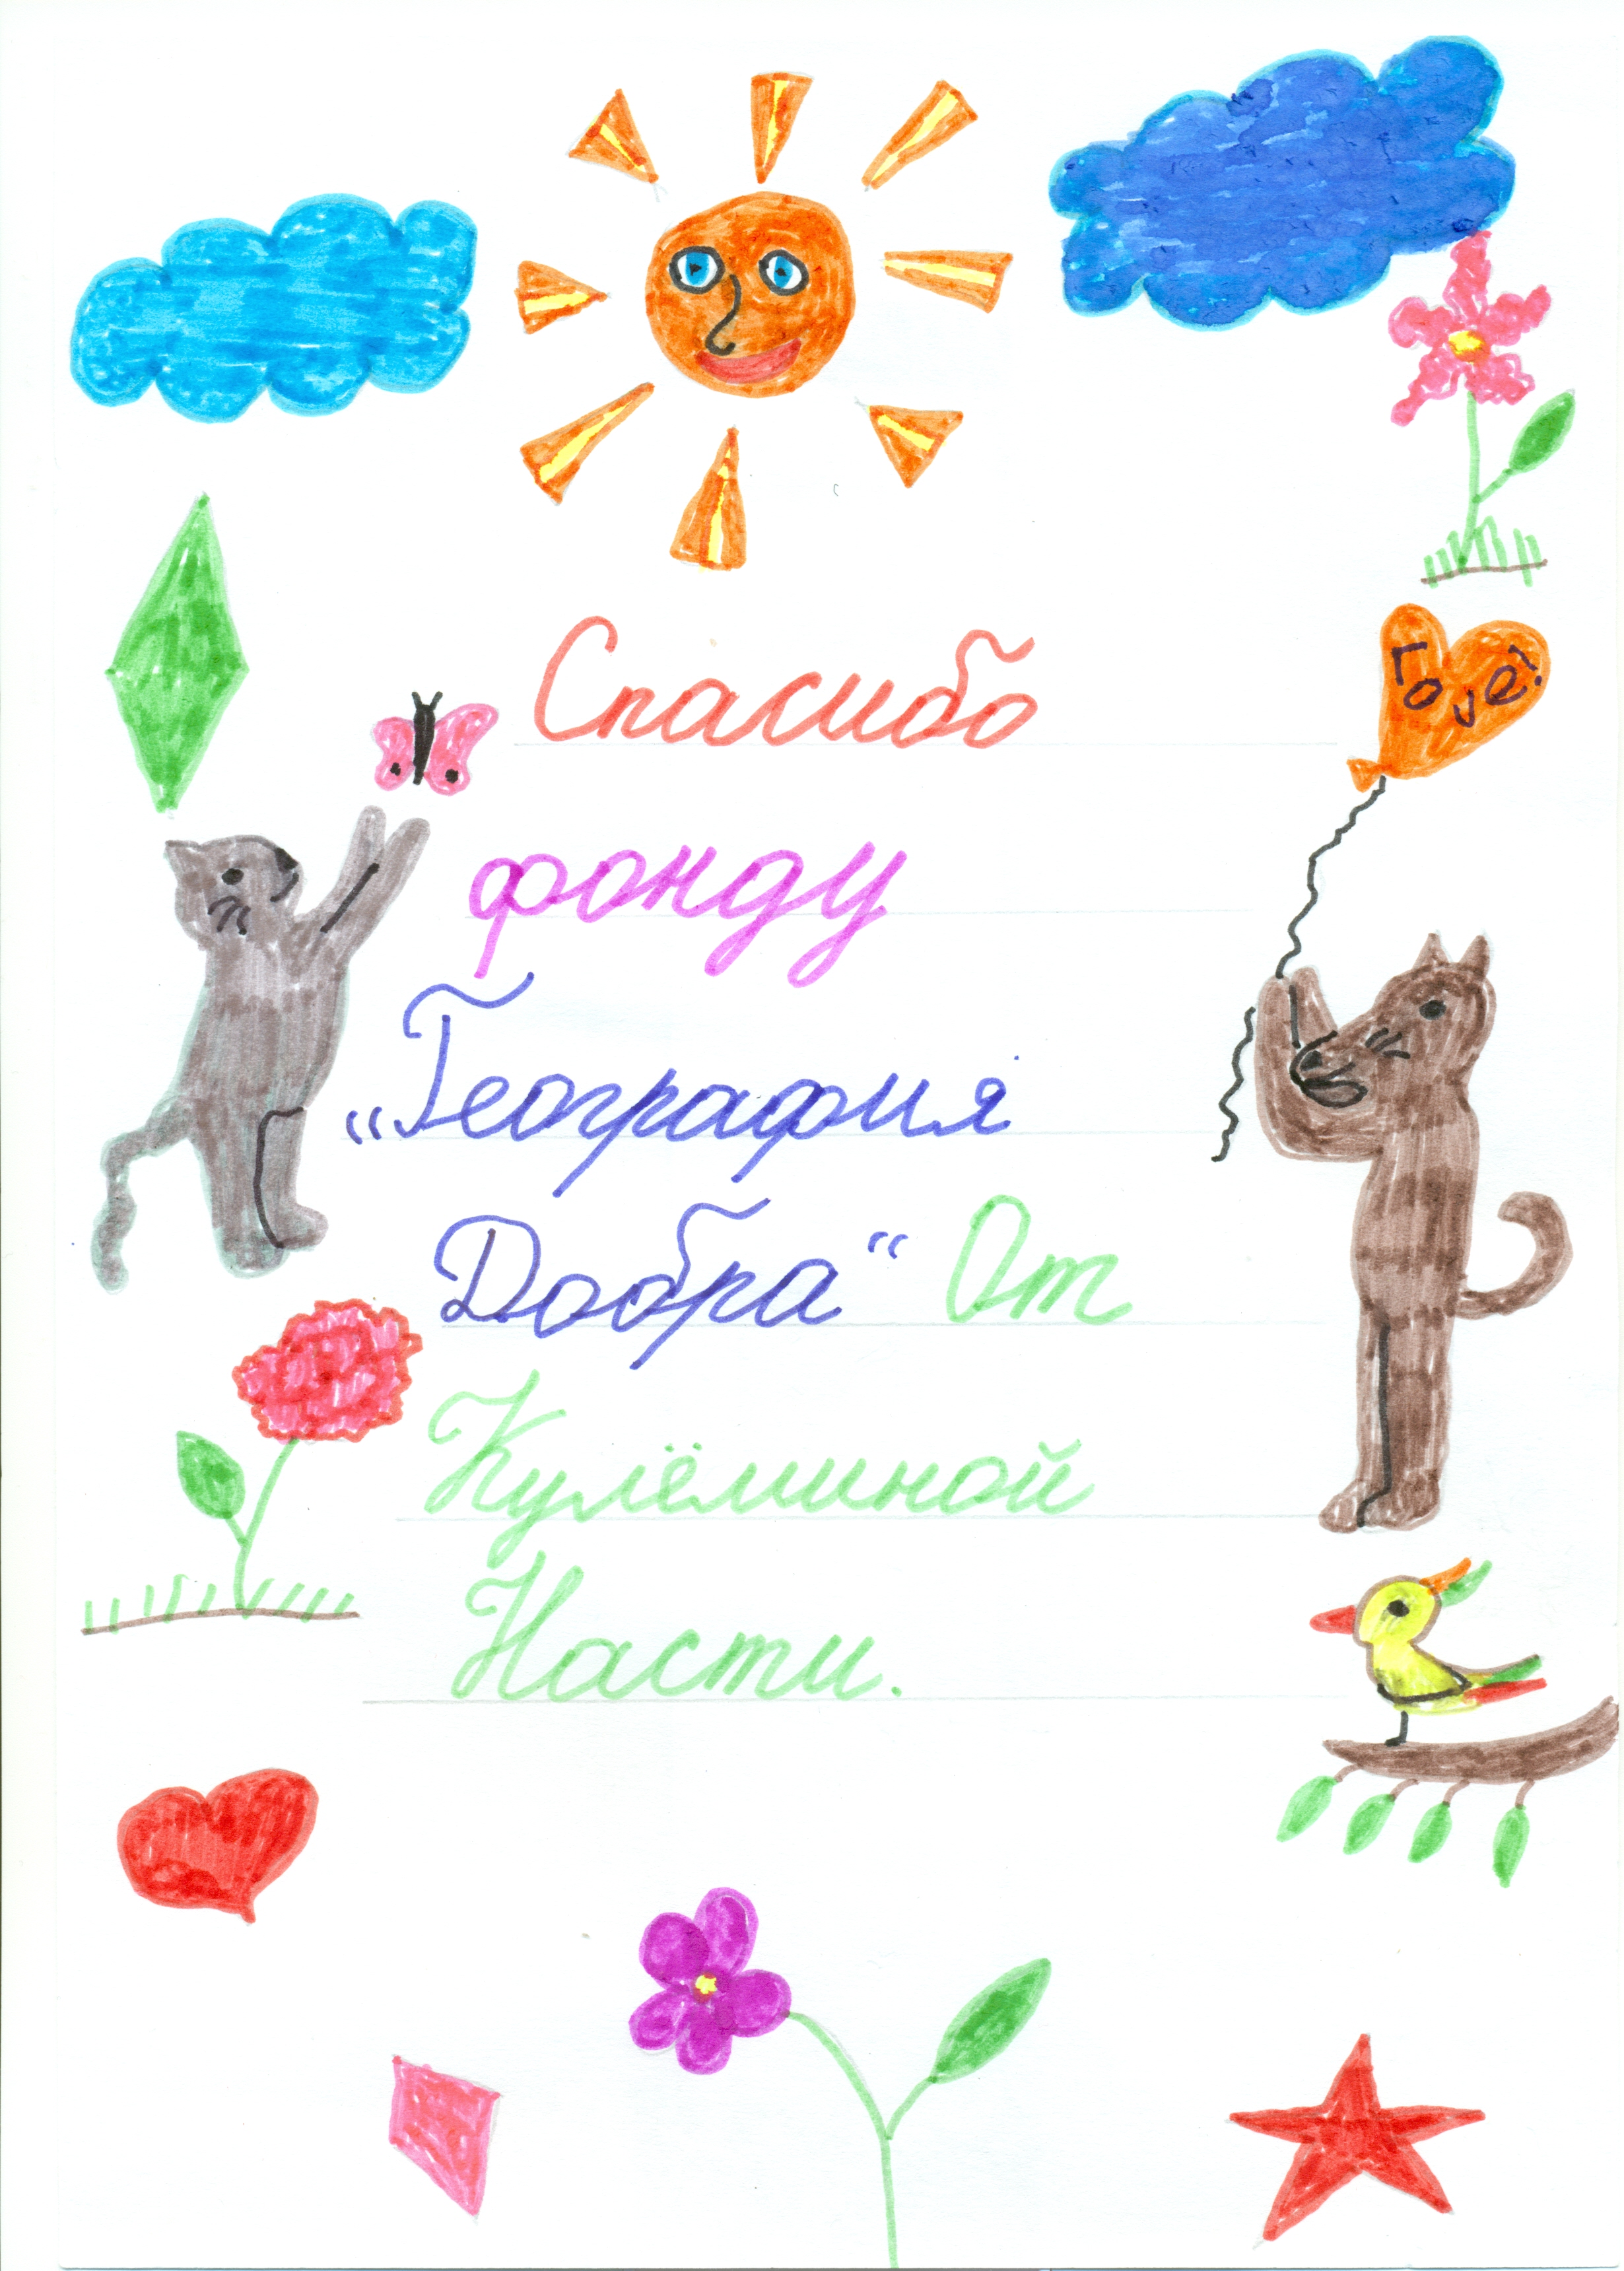 Спасибо
фонду
„География
Добра“ От
Кулёминой
Насти.